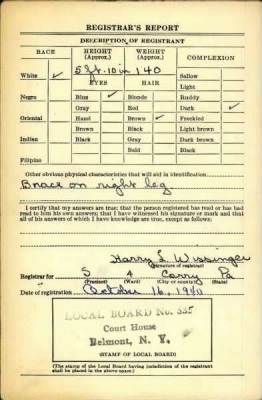 REGISTRAR'S REPORT
DESCRIPTION OF REGISTRANT
RACE HEIGHT (Approx.) WEIGHT (Approx.) COMPLEXION
5 ft. 10 in 140
White ✓ EYES HAIR Sallow
Light
Negro Blue ✓ Blonde Ruddy
Gray Red Dark ✓
Oriental Hazel Brown ✓ Freckled
Brown Black Light brown
Indian Black Gray Dark brown
Bald Black
Filipino
Other obvious physical characteristics that will aid in identification
Brace on right leg
I certify that my answers are true; that the person registered has read or has had
read to him his own answers; that I have witnessed his signature or mark and that
all of his answers of which I have knowledge are true, except as follows:
Harry L Wissinger
(Signature of registrar)
Registrar for 5 4 Corry Pa
(Precinct) (Ward) (City or county) (State)
Date of registration October 16, 1940
LOCAL BOARD No. 535
Court House
Belmont, N. Y.
(STAMP OF LOCAL BOARD)
(The stamp of the Local Board having jurisdiction of the registrant
shall be placed in the above space.)